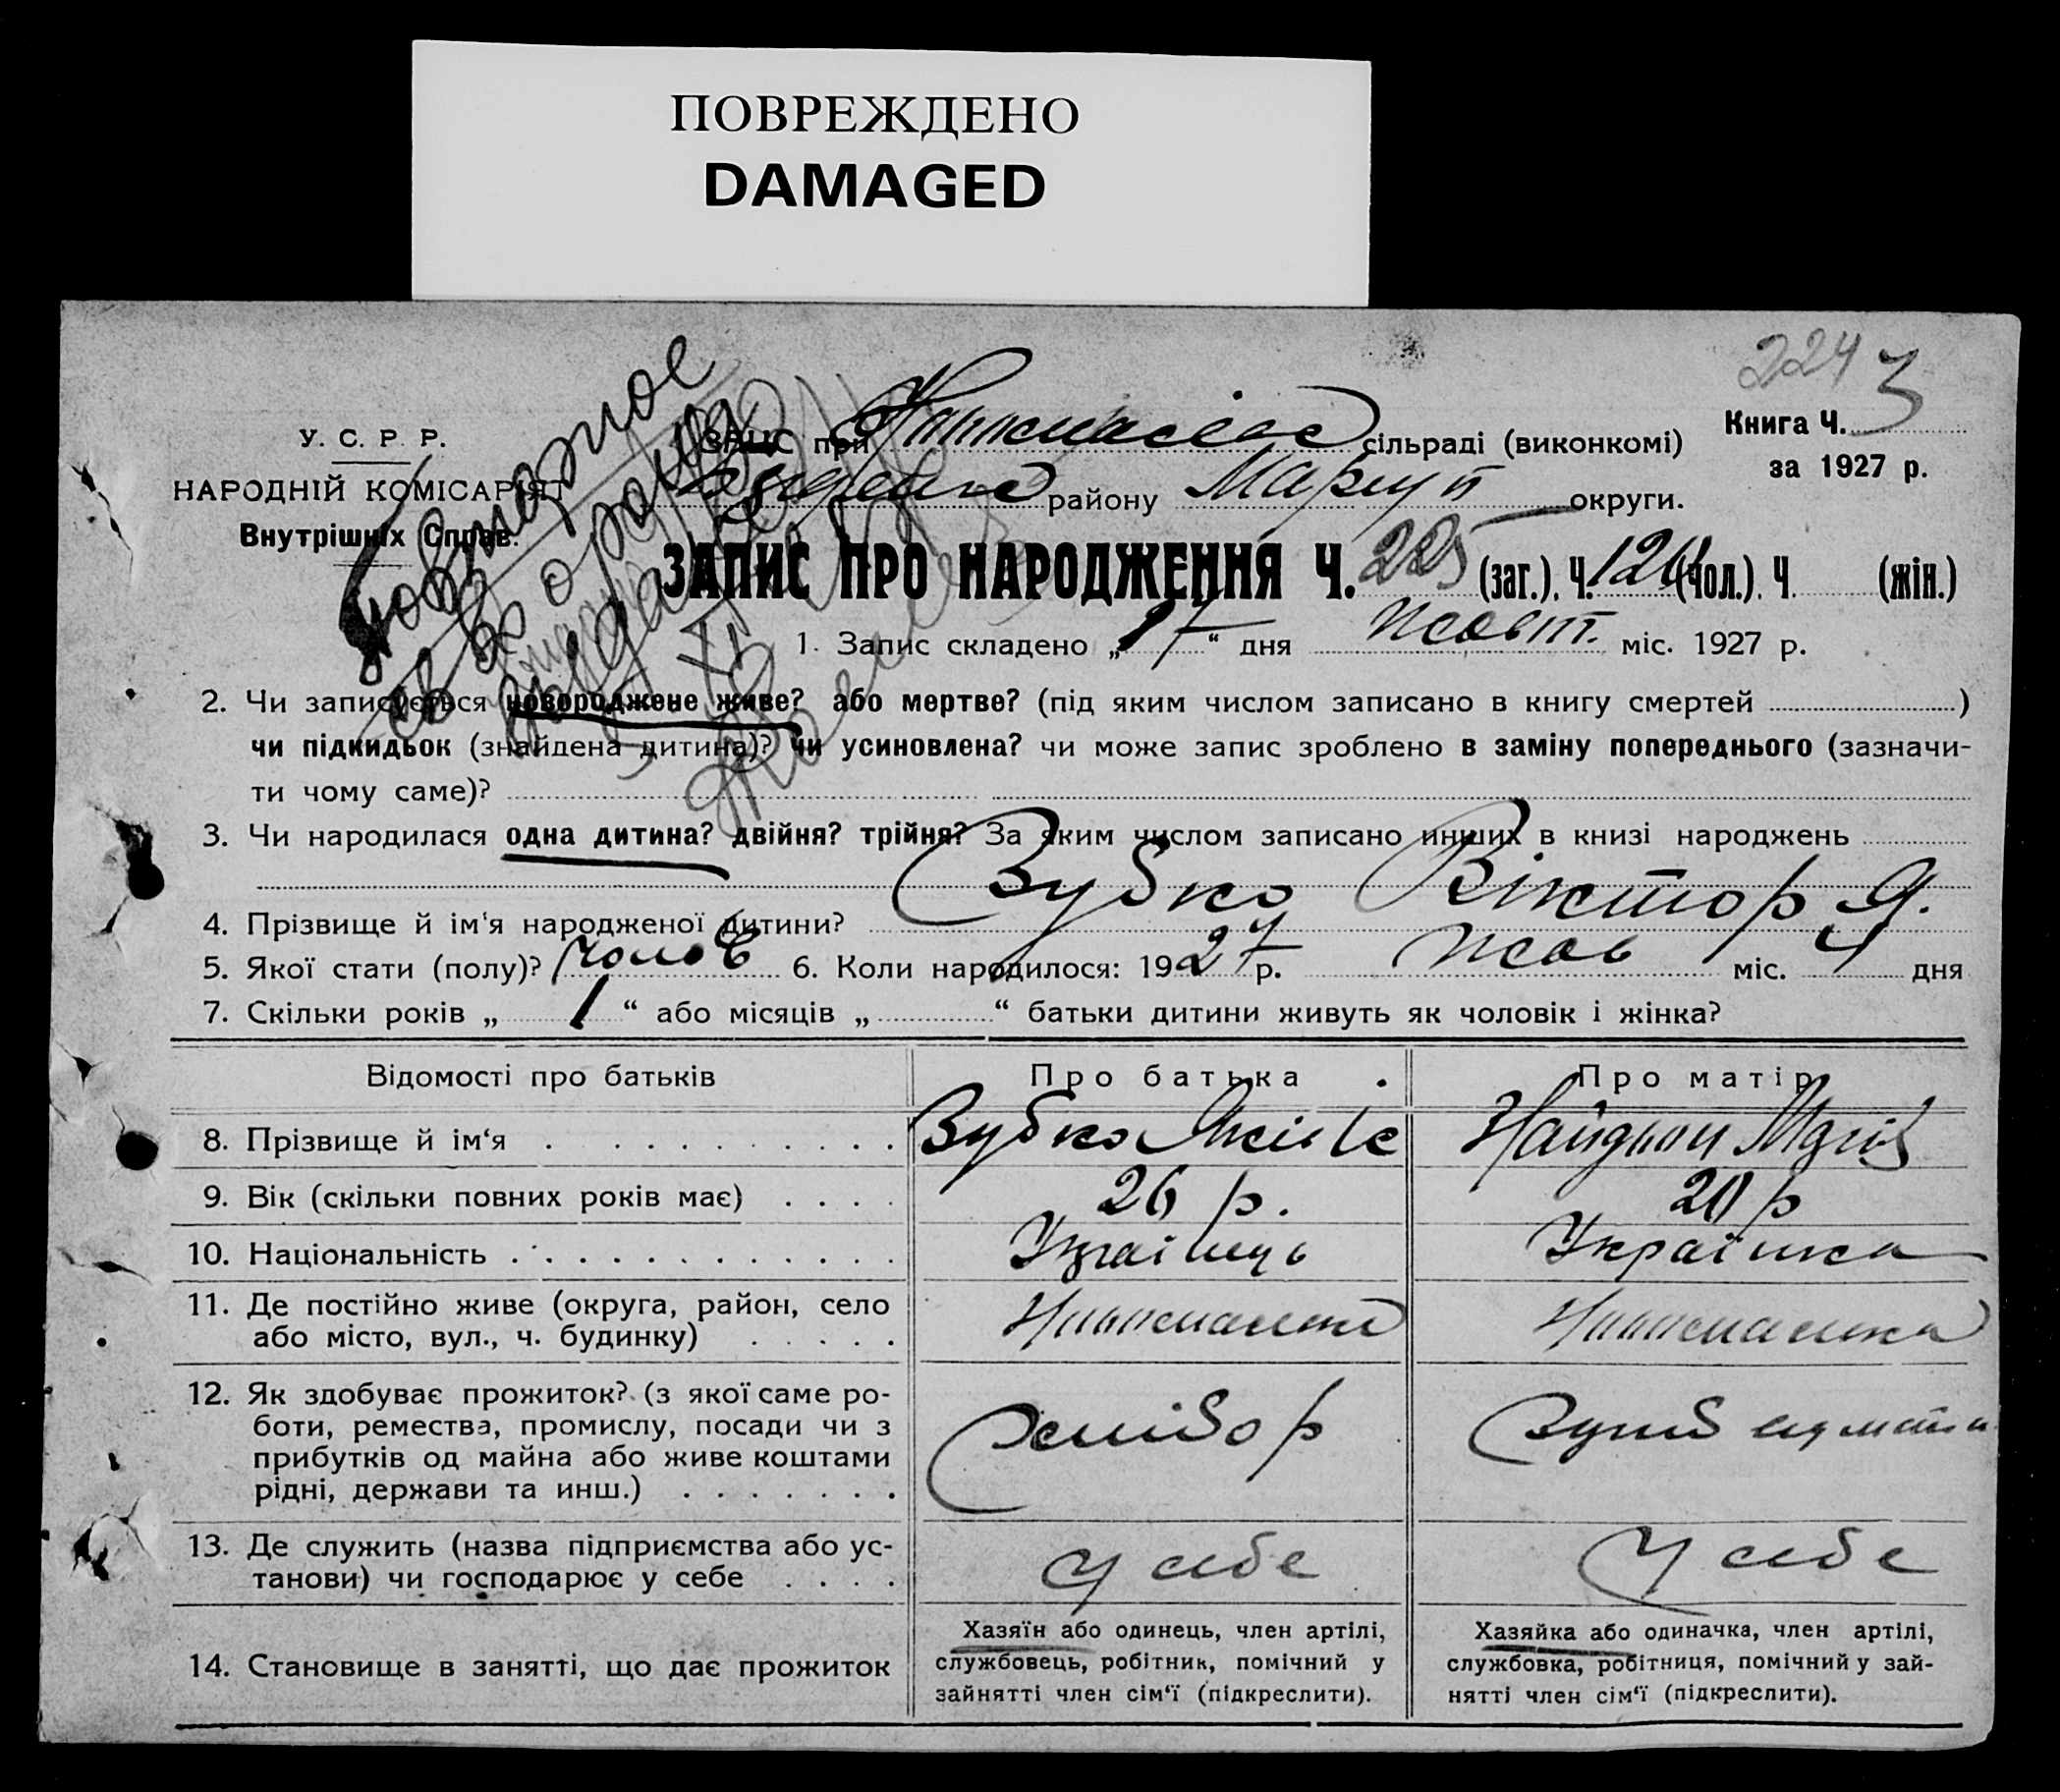 ПОВРЕЖДЕНО
DAMAGED
224 3
У. С. Р. Р.
НАРОДНІЙ КОМІСАРІЯТ
Внутрішніх Справ.
ЗАГС при сільраді (виконкомі)
району Маріуп округи.
Книга Ч.
за 1927 р.
Повторное
св во о рожд
ЗАПИС ПРО НАРОДЖЕННЯ Ч. 225 (заг.). Ч. (чол.). Ч. (жін.)
1. Запис складено „17“ дня жовт. міс. 1927 р.
2. Чи записується новороджене живе? або мертве? (під яким числом записано в книгу смертей )
чи підкидьок (знайдена дитина)? чи усиновлена? чи може запис зроблено в заміну попереднього (зазначи-
ти чому саме)?
3. Чи народилася одна дитина? двійня? трійня? За яким числом записано инших в книзі народжень
4. Прізвище й ім‘я народженої дитини? Зубко Віктор Я.
5. Якої стати (полу)? чолов 6. Коли народилося: 1927 р. жов міс. 4 дня
7. Скільки років „ 1 “ або місяців „ “ батьки дитини живуть як чоловік і жінка?
Відомості про батьків Про батька Про матір
8. Прізвище й ім‘я Зубко Яків
9. Вік (скільки повних років має) 26 р. 20 р
10. Національність Українець Українка
11. Де постійно живе (округа, район, село
або місто, вул., ч. будинку)
12. Як здобуває прожиток? (з якої саме ро-
боти, ремества, промислу, посади чи з
прибутків од майна або живе коштами
рідні, держави та инш.) хлібор
13. Де служить (назва підприємства або ус-
танови) чи господарює у себе у себе у себе
14. Становище в занятті, що дає прожиток
Хазяїн або одинець, член артілі,
службовець, робітник, помічний у
зайнятті член сім‘ї (підкреслити).
Хазяйка або одиначка, член артілі,
службовка, робітниця, помічний у зай-
нятті член сім‘ї (підкреслити).